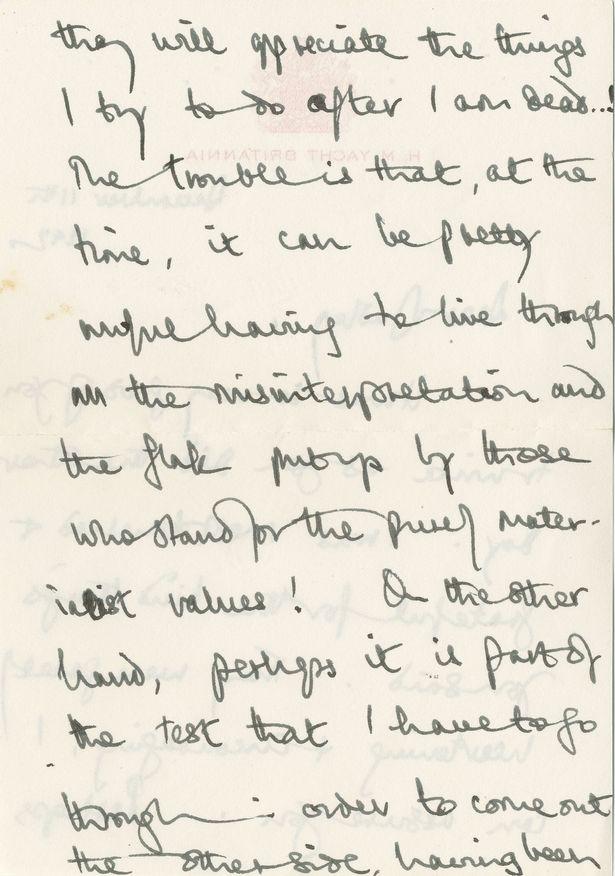 they will appreciate the things
I try to do after I am dead...!
The trouble is that, at the
time, it can be pretty
having to live through
all the misinterpretation and
the flak put up by those
who stand for the purely mater-
ialist values! On the other
hand, perhaps it is part of
the test that I have to go
through in order to come out
the other side, having been
H.M. YACHT BRITANNIA